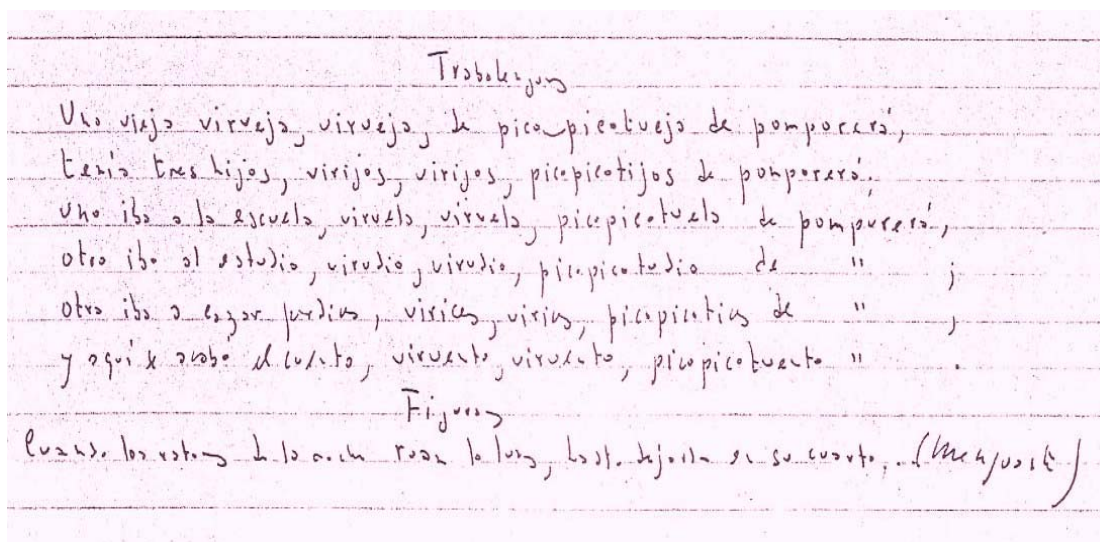 Trabalenguas
Una vieja virueja, virueja, de pico picotueja de pomporerá,
tenía tres hijos, virijos, virijos, picopicotijos de pomporerá.
Uno iba a la escuela, viruela, viruela, picopicotuela de pomporerá,
otro iba al estudio, virudio, virudio, picopicotudio de " ;
otro iba a cazar perdices, virices, virices, picopicotices de " ;
y aquí se acabó el cuento, viruento, viruento, picopicotuento " .
Figuras
Cuando los ratones de la noche roen la luna, hasta dejarla en su cuarto... (Menguante)